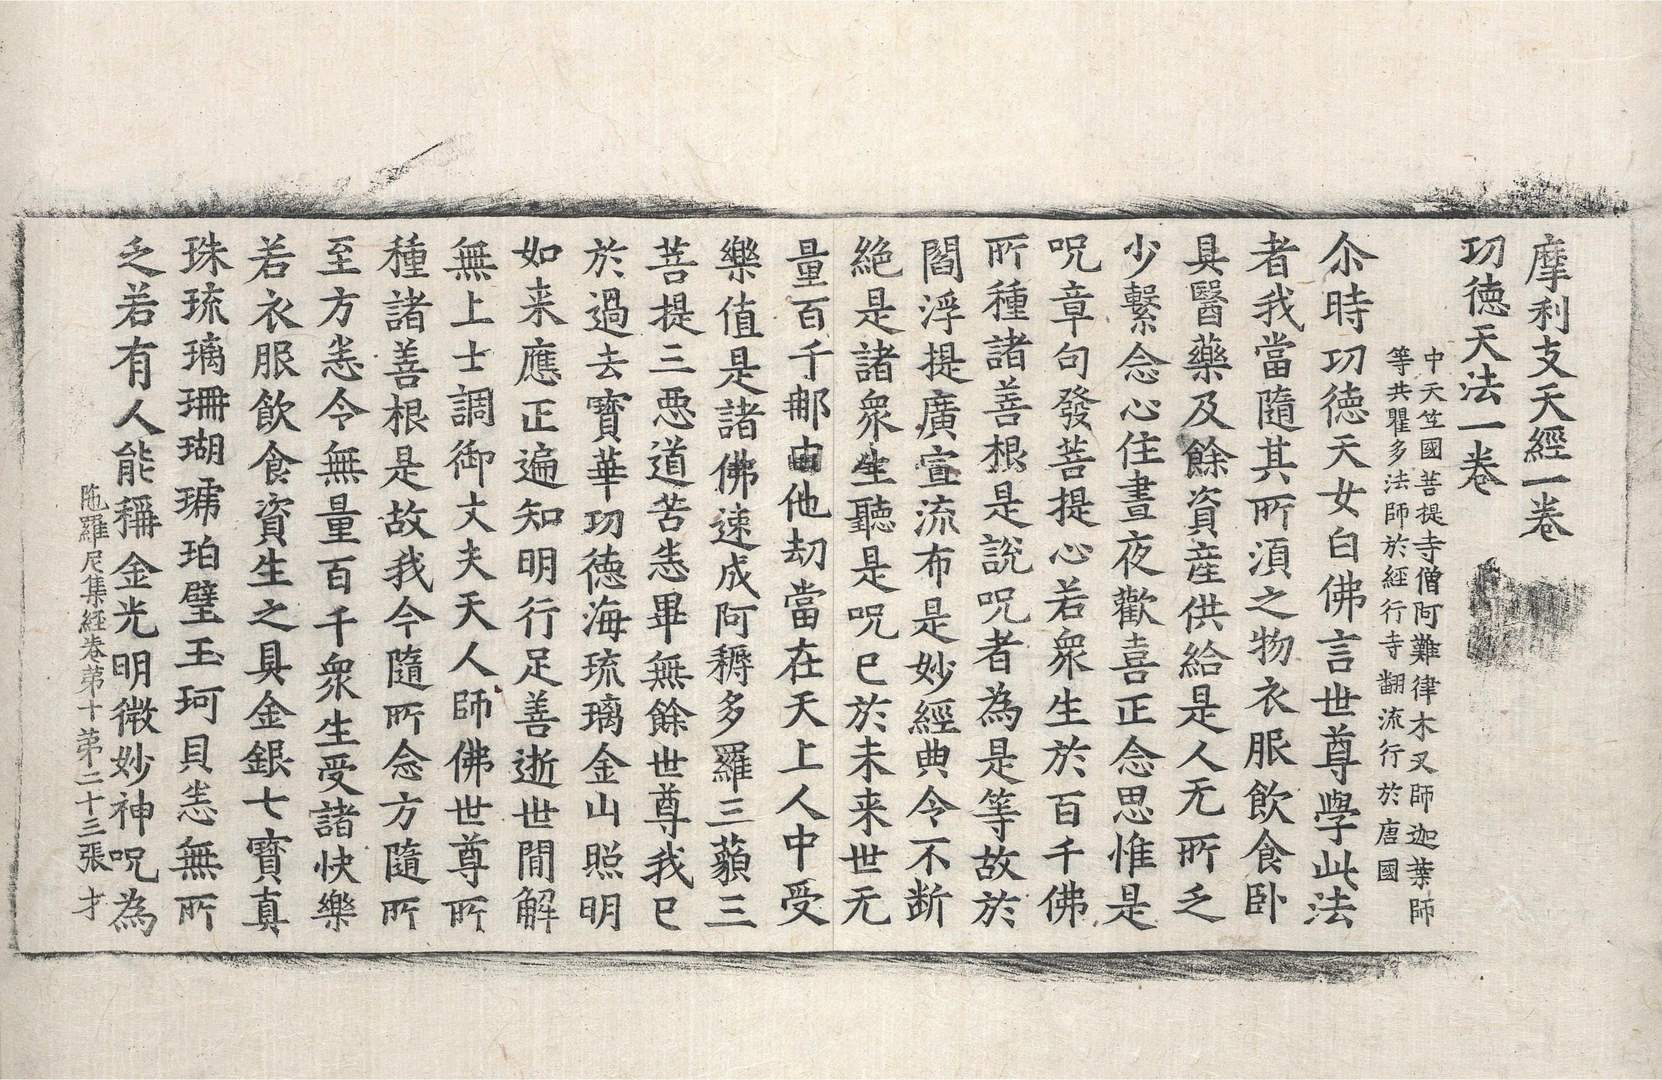 摩利支天經一卷
功德天法一卷
中天竺國菩提寺僧阿難律木叉師迦葉師
等共瞿多法師於經行寺翻流行於唐國
尒時功德天女白佛言世尊學此法
者我當隨其所湏之物衣服飲食卧
具醫藥及餘資産供給是人无所乏
少繫念心住晝夜歡喜正念思惟是
呪章句發菩提心若衆生於百千佛
所種諸善根是說呪者為是等故於
閻浮提廣宣流布是妙經典令不断
絶是諸衆生聽是呪已於未来世无
量百千那由他劫當在天上人中受
樂值是諸佛速成阿耨多羅三藐三
菩提三惡道苦悉畢無餘世尊我已
於過去寳華功德海琉璃金山照明
如来應正遍知明行足善逝世間解
無上士調御丈夫天人師佛世尊所
種諸善根是故我今隨所念方隨所
至方悉令無量百千衆生受諸快樂
若衣服飲食資生之具金銀七寳真
珠琉璃珊瑚琥珀璧玉珂貝悉無所
乏若有人能稱金光明微妙神呪為
陁羅尼集經卷第十 第二十三張 才